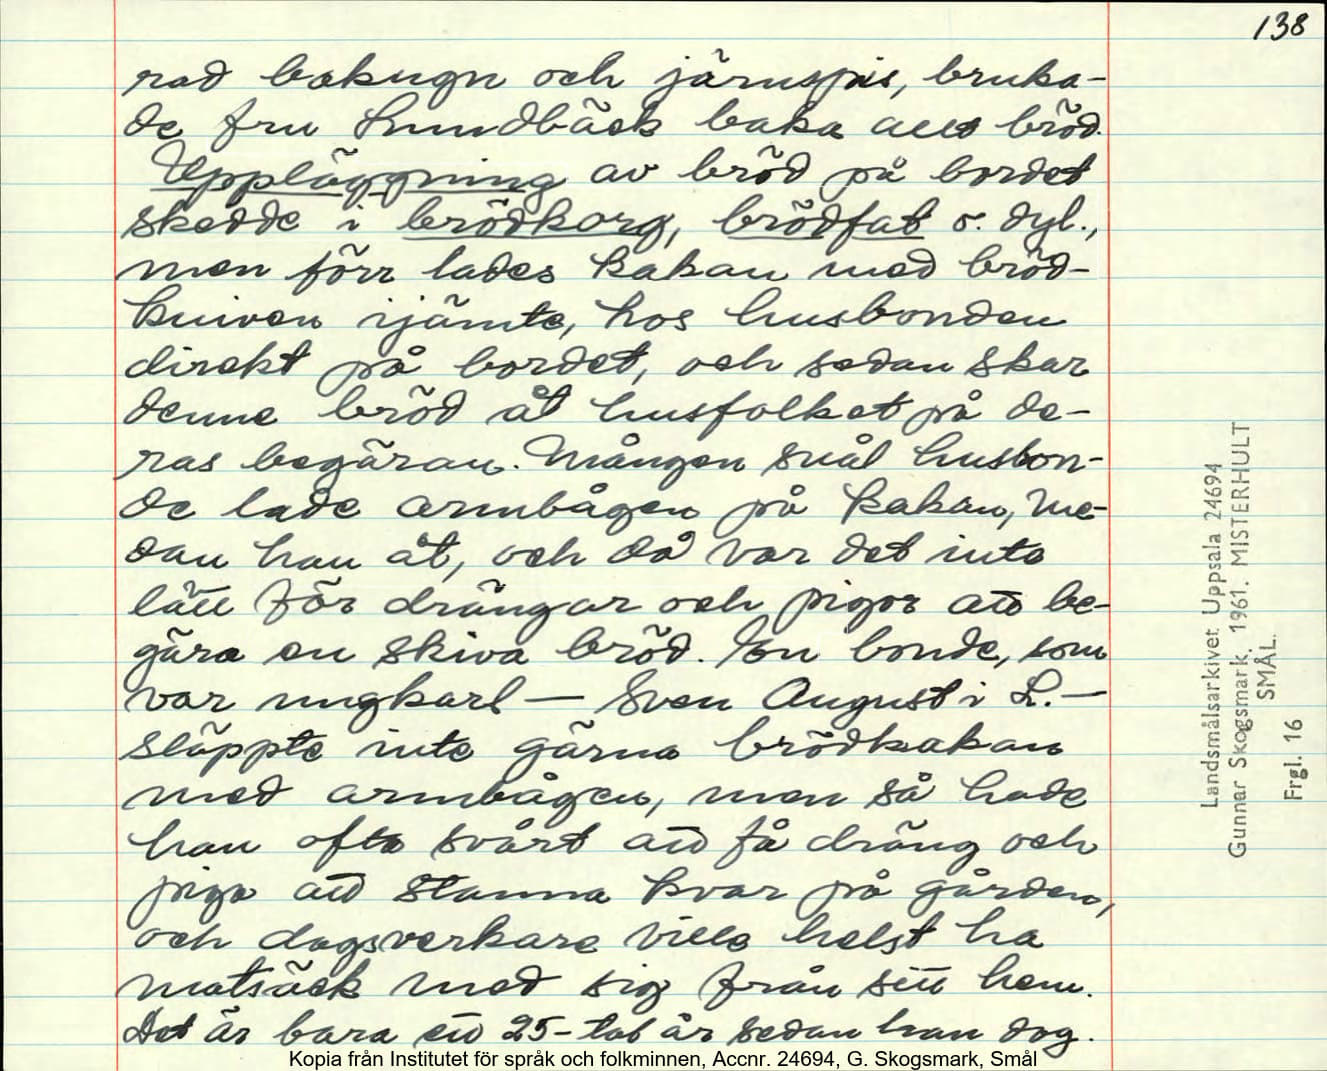 138
rad bakugn och järnspis, bruka-
de fru Lundbäck baka allt bröd.
Uppläggning av bröd på bordet
skedde i brödkorg, brödfat o. dyl.,
men förr lades kakan med bröd-
kniven ijämte, hos husbonden
direkt på bordet, och sedan skar
denne bröd åt husfolket på de-
ras begäran. Mången snål husbon-
de lade armbågen på kakan, me-
dan han åt, och då var det inte
lätt för drängar och pigor att be-
gära en skiva bröd. En bonde, som
var ungkarl — Sven August i L. —
släppte inte gärna brödkakan
med armbågen, men så hade
han ofta svårt att få dräng och
piga att stanna kvar på gården,
och dagsverkare ville helst ha
matsäck med sig från sitt hem.
Det är bara ett 25-tal år sedan han dog.
Landsmålsarkivet Uppsala 24694
Gunnar Skogsmark. 1961. MISTERHULT
SMÅL.
Frgl. 16
Kopia från Institutet för språk och folkminnen, Accnr. 24694, G. Skogsmark, Smål